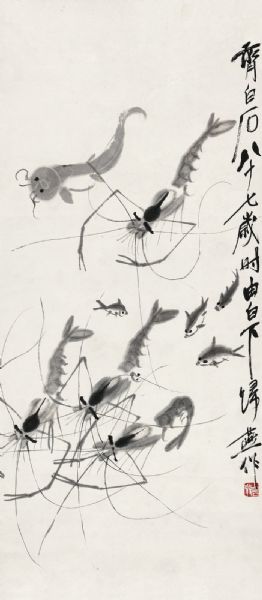 齊白石八十七歲时由白下归燕作